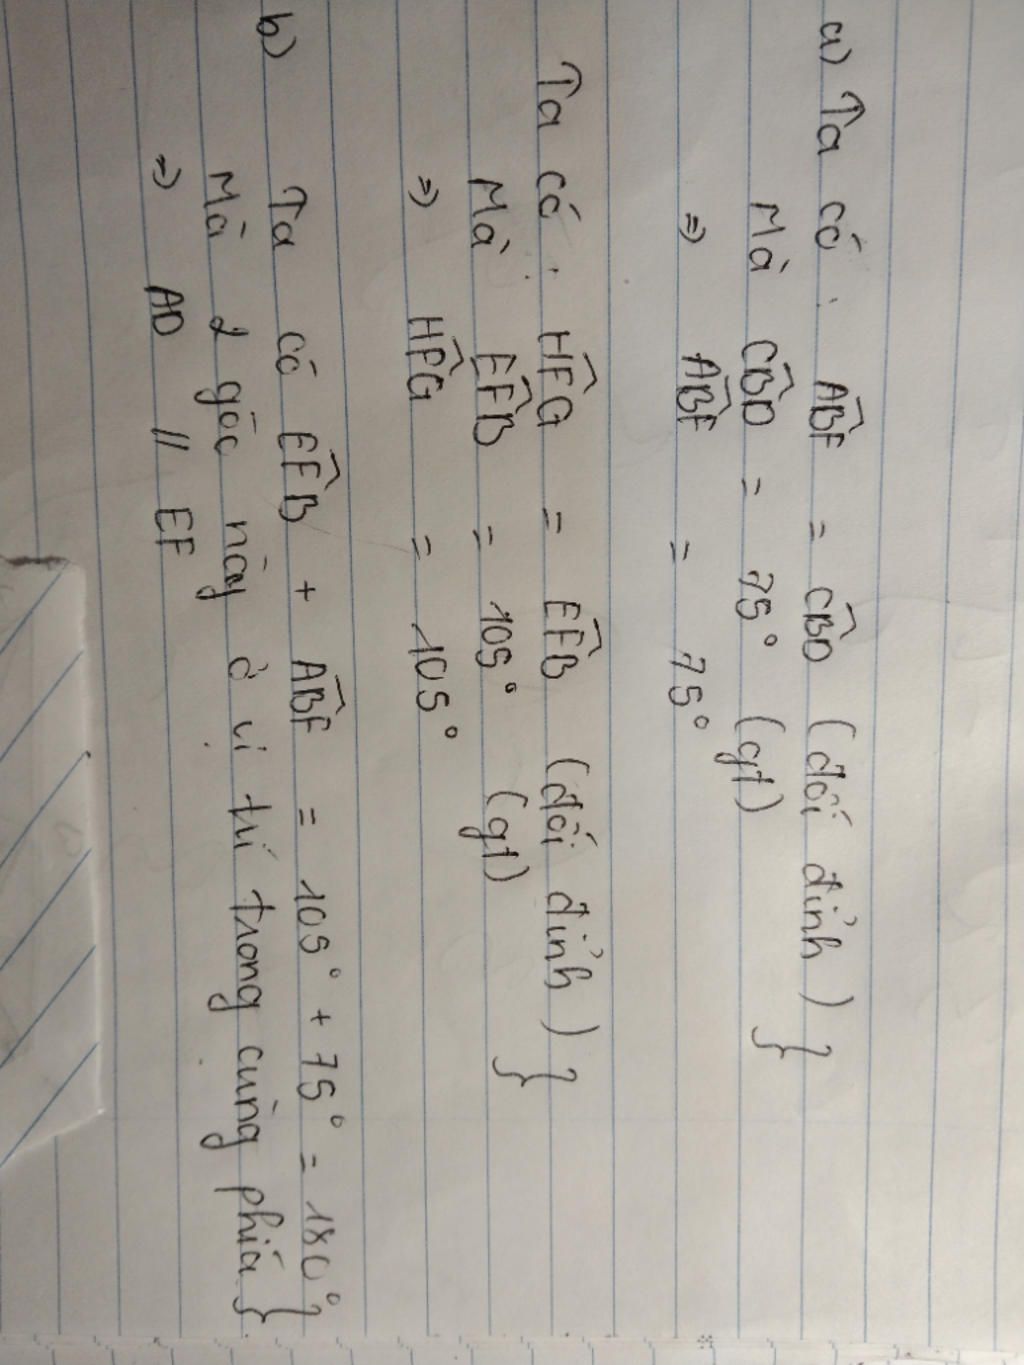 a) Ta có: ABF = CBD (đối đỉnh) }
Mà CBD = 75° (gt)
=> ABF = 75°
Ta có: HFG = EFB (đối đỉnh) }
Mà EFB = 105° (gt)
=> HFG = 105°
b) Ta có EFB + ABF = 105° + 75° = 180° }
Mà 2 góc này ở vị trí trong cùng phía }
=> AD // EF